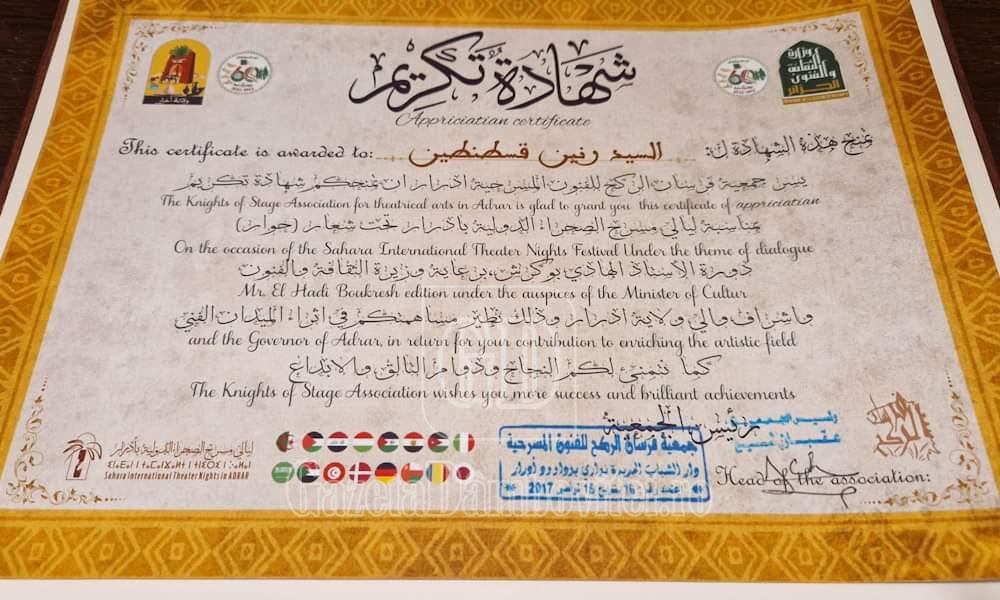 شهادة تكريم
Appriciatian certificate
60
60
وزارة
الثقافة
والفنون
الجزائر
تمنح هذه الشهادة ل:
السيد رنين قسطنطين
This certificate is awarded to:
يسر جمعية فرسان الركح للفنون المسرحية ادرار ان تمنحكم شهادة تكريم
The Knights of Stage Association for theatrical arts in Adrar is glad to grant you this certificate of appriciatian
بمناسبة ليالي مسرح الصحراء الدولية بأدرار تحت شعار (حوار)
On the occasion of the Sahara International Theater Nights Festival Under the theme of dialogue
دورة الأستاذ الهادي بوكرش، برعاية وزيرة الثقافة والفنون
Mr. El Hadi Boukresh edition under the auspices of the Minister of Cultur
واشراف والي ولاية ادرار وذلك نظير مساهمتكم في اثراء الميدان الفني
and the Governor of Adrar, in return for your contribution to enriching the artistic field
كما نتمنى لكم النجاح ودوام التألق والابداع
The Knights of Stage Association wishes you more success and brilliant achievements
رئيس الجمعية
رئيس الجمعية
جمعية فرسان الركح للفنون المسرحية
2017
Head of the association:
ليالي مسرح الصحراء الدولية بأدرار
Sahara international Theater Nights in ADRAR
GD
GazetaDambovitei.ro